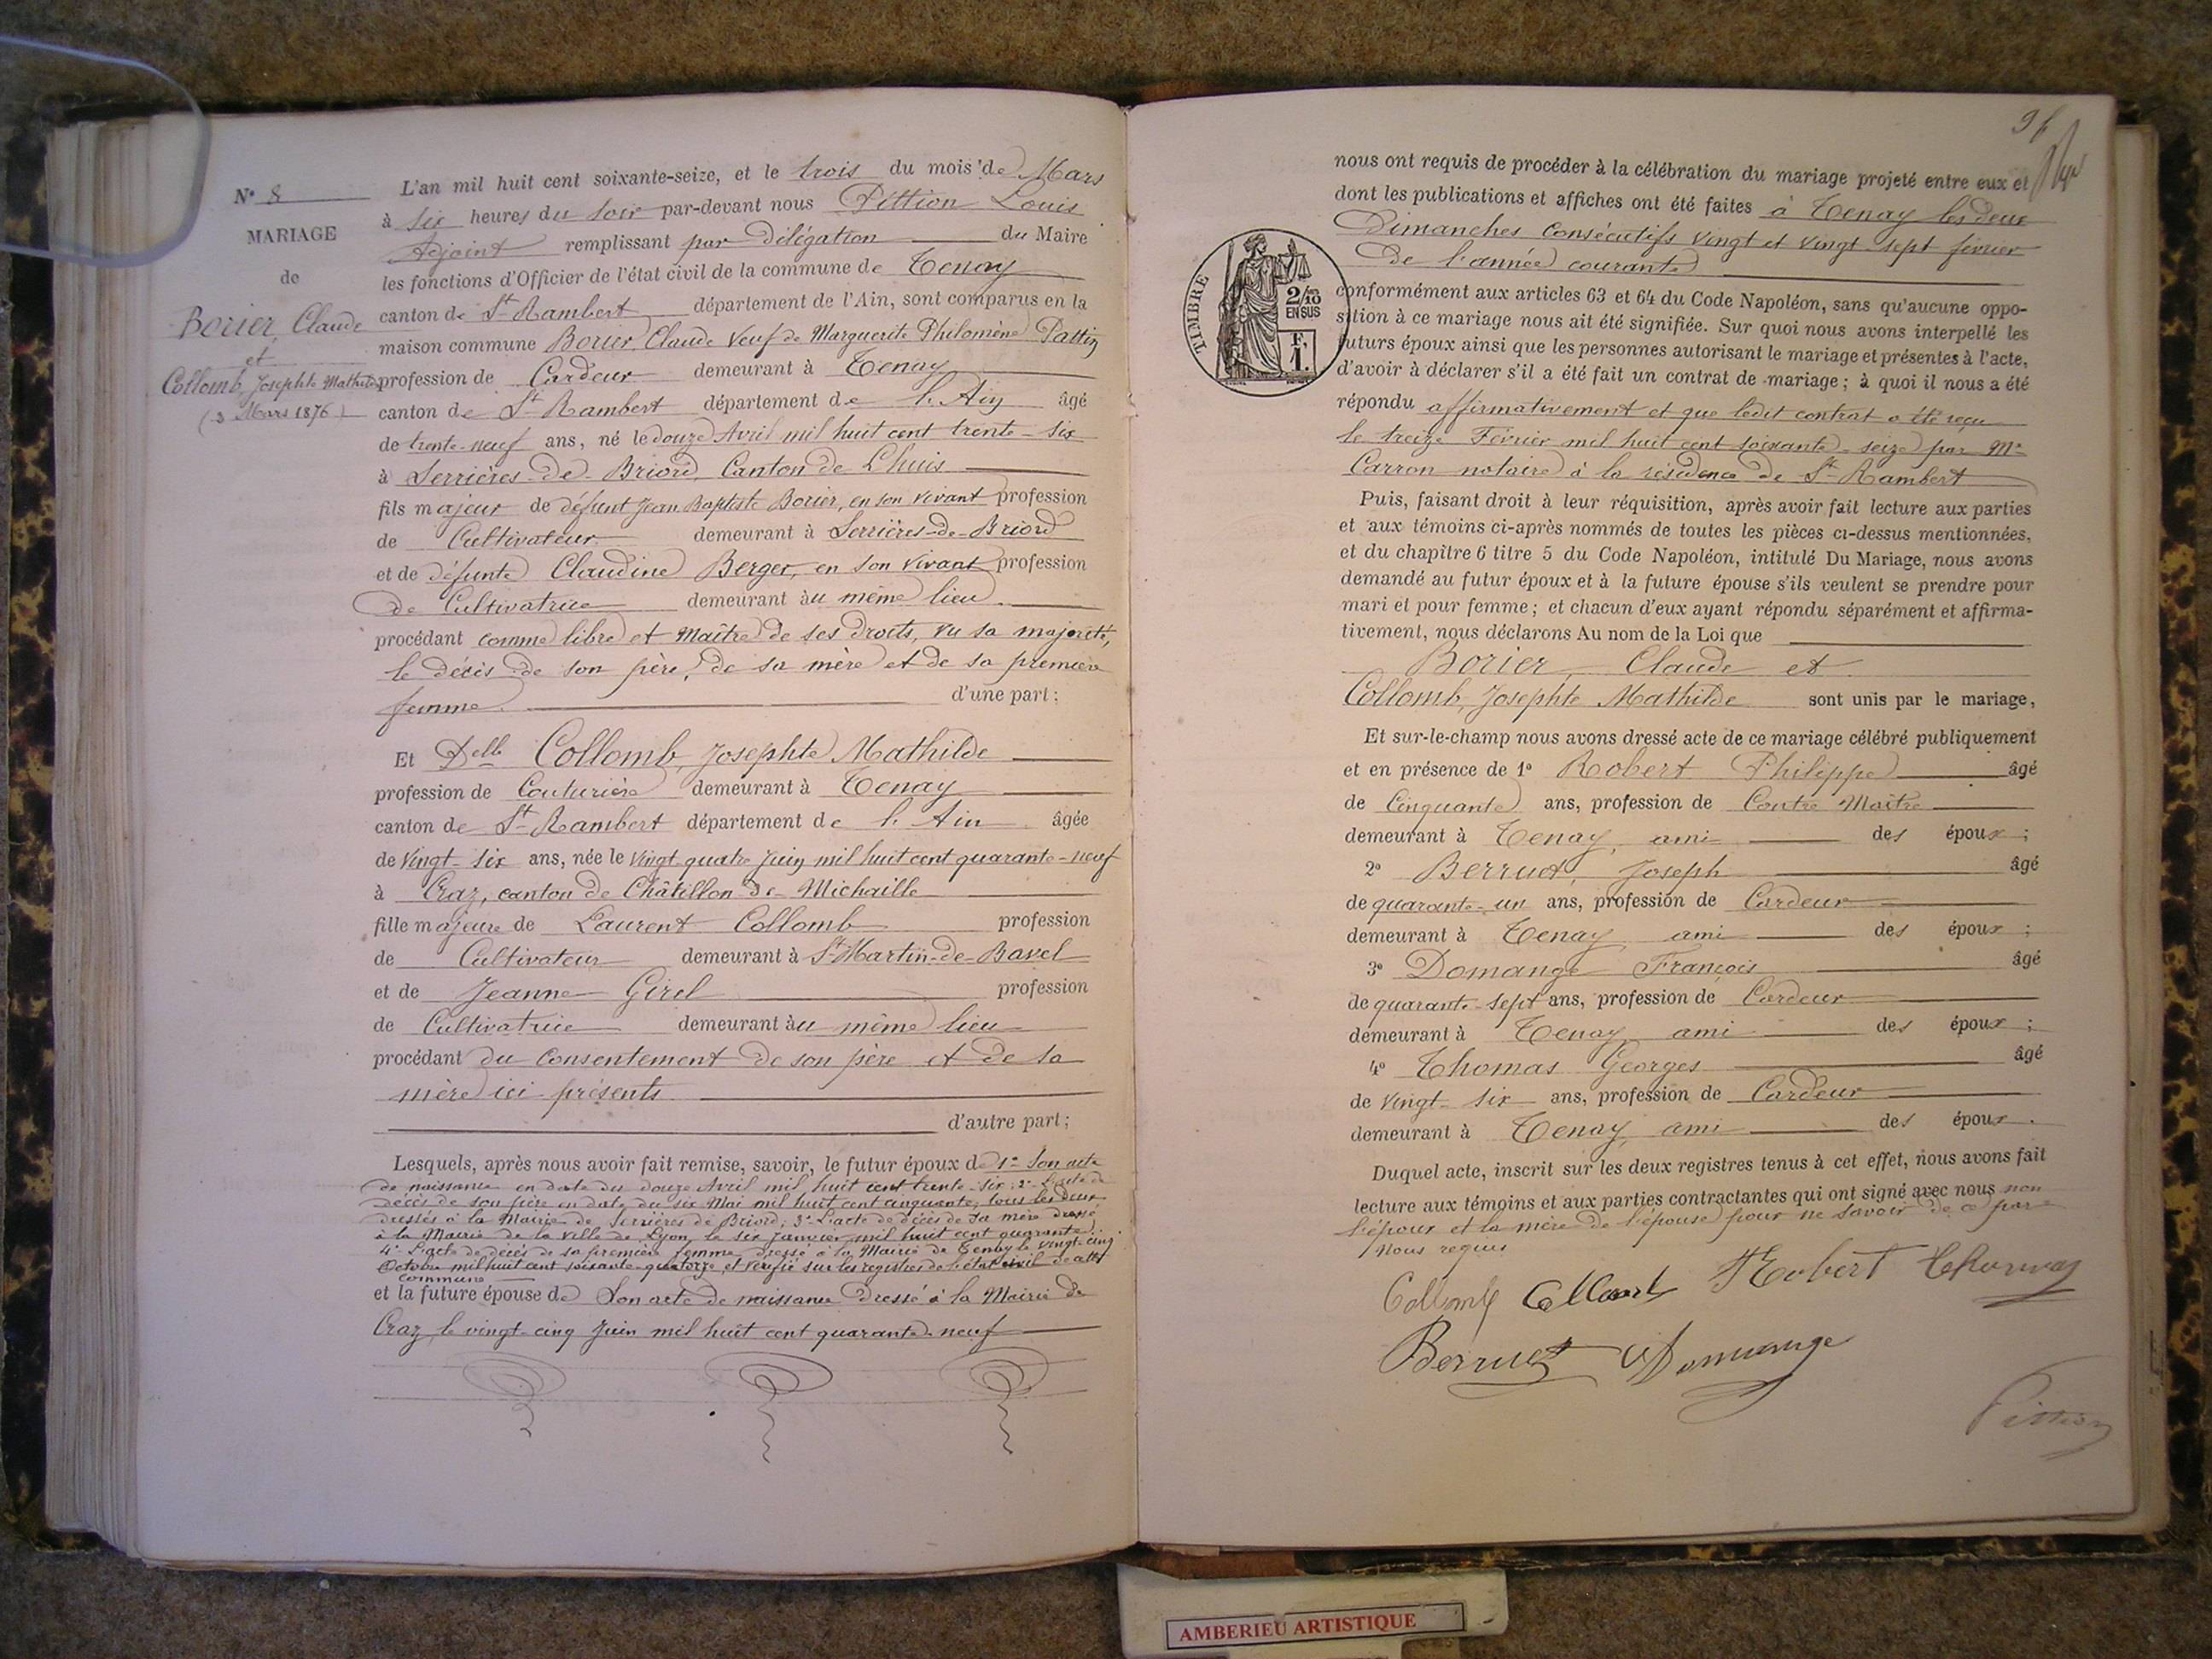 N° 8
MARIAGE
de
Borier, Claude
et
Collomb, Josephte Mathilde
(3 Mars 1876)
L'an mil huit cent soixante-seize, et le trois du mois de Mars
à six heures du soir par-devant nous Pittion Louis
Adjoint remplissant par délégation du Maire
les fonctions d'Officier de l'état civil de la commune de Tenay
canton de St Rambert département de l'Ain, sont comparus en la
maison commune Borier, Claude Veuf de Marguerite Philomène Pattin
profession de Cardeur demeurant à Tenay
canton de St Rambert département de l'Ain âgé
de trente-neuf ans, né le douze Avril mil huit cent trente-six
à Serrières-de-Briord, Canton de Lhuis
fils majeur de défunt Jean Baptiste Borier, en son vivant profession
de Cultivateur demeurant à Serrières-de-Briord
et de défunte Claudine Berger, en son vivant profession
de Cultivatrice demeurant au même lieu
procédant comme libre et Maître de ses droits, vu sa majorité,
le décès de son père, de sa mère et de sa première
femme d'une part;
Et Delle Collomb, Josephte Mathilde
profession de Couturière demeurant à Tenay
canton de St Rambert département de l'Ain âgée
de vingt-six ans, née le vingt-quatre Juin mil huit cent quarante-neuf
à Craz, canton de Châtillon-de-Michaille
fille majeure de Laurent Collomb profession
de Cultivateur demeurant à St Martin-de-Bavel
et de Jeanne Girel profession
de Cultivatrice demeurant au même lieu
procédant du consentement de son père et de sa
mère ici présents
d'autre part;
Lesquels, après nous avoir fait remise, savoir, le futur époux de 1° Son acte
de naissance en date du douze Avril mil huit cent trente-six; 2° L'acte de
décès de son père en date du six Mai mil huit cent cinquante, tous les deux
dressés à la Mairie de Serrières de Briord; 3° L'acte de décès de sa mère dressé
à la Mairie de la Ville de Lyon, le six Janvier mil huit cent quarante;
4° L'acte de décès de sa première femme dressé à la Mairie de Tenay le vingt-cinq
Octobre mil huit cent soixante-quatorze, et vérifié sur les registres de l'état civil de cette
commune
et la future épouse de Son acte de naissance dressé à la Mairie de
Craz, le vingt-cinq Juin mil huit cent quarante-neuf
96
nous ont requis de procéder à la célébration du mariage projeté entre eux et
dont les publications et affiches ont été faites à Tenay les deux
Dimanches consécutifs vingt et vingt-sept février
de l'année courante
TIMBRE
2/10
EN SUS
F.
1.
conformément aux articles 63 et 64 du Code Napoléon, sans qu'aucune oppo-
sition à ce mariage nous ait été signifiée. Sur quoi nous avons interpellé les
futurs époux ainsi que les personnes autorisant le mariage et présentes à l'acte,
d'avoir à déclarer s'il a été fait un contrat de mariage; à quoi il nous a été
répondu affirmativement et que ledit contrat a été reçu
le treize Février mil huit cent soixante-seize par Me
Carron notaire à la résidence de St Rambert
Puis, faisant droit à leur réquisition, après avoir fait lecture aux parties
et aux témoins ci-après nommés de toutes les pièces ci-dessus mentionnées,
et du chapitre 6 titre 5 du Code Napoléon, intitulé Du Mariage, nous avons
demandé au futur époux et à la future épouse s'ils veulent se prendre pour
mari et pour femme; et chacun d'eux ayant répondu séparément et affirma-
tivement, nous déclarons Au nom de la Loi que
Borier, Claude et
Collomb, Josephte Mathilde sont unis par le mariage,
Et sur-le-champ nous avons dressé acte de ce mariage célébré publiquement
et en présence de 1° Robert Philippe âgé
de Cinquante ans, profession de Contre-Maître
demeurant à Tenay, ami des époux;
2° Berruet, Joseph âgé
de quarante-un ans, profession de Cardeur
demeurant à Tenay ami des époux;
3° Domange François âgé
de quarante-sept ans, profession de Cardeur
demeurant à Tenay ami des époux;
4° Thomas Georges âgé
de vingt-six ans, profession de Cardeur
demeurant à Tenay, ami des époux.
Duquel acte, inscrit sur les deux registres tenus à cet effet, nous avons fait
lecture aux témoins et aux parties contractantes qui ont signé avec nous non
l'époux et la mère de l'épouse pour ne savoir de ce par
nous requis
Collomb Collomb Robert Thomas
Berruet Domange
Pittion
AMBERIEU ARTISTIQUE